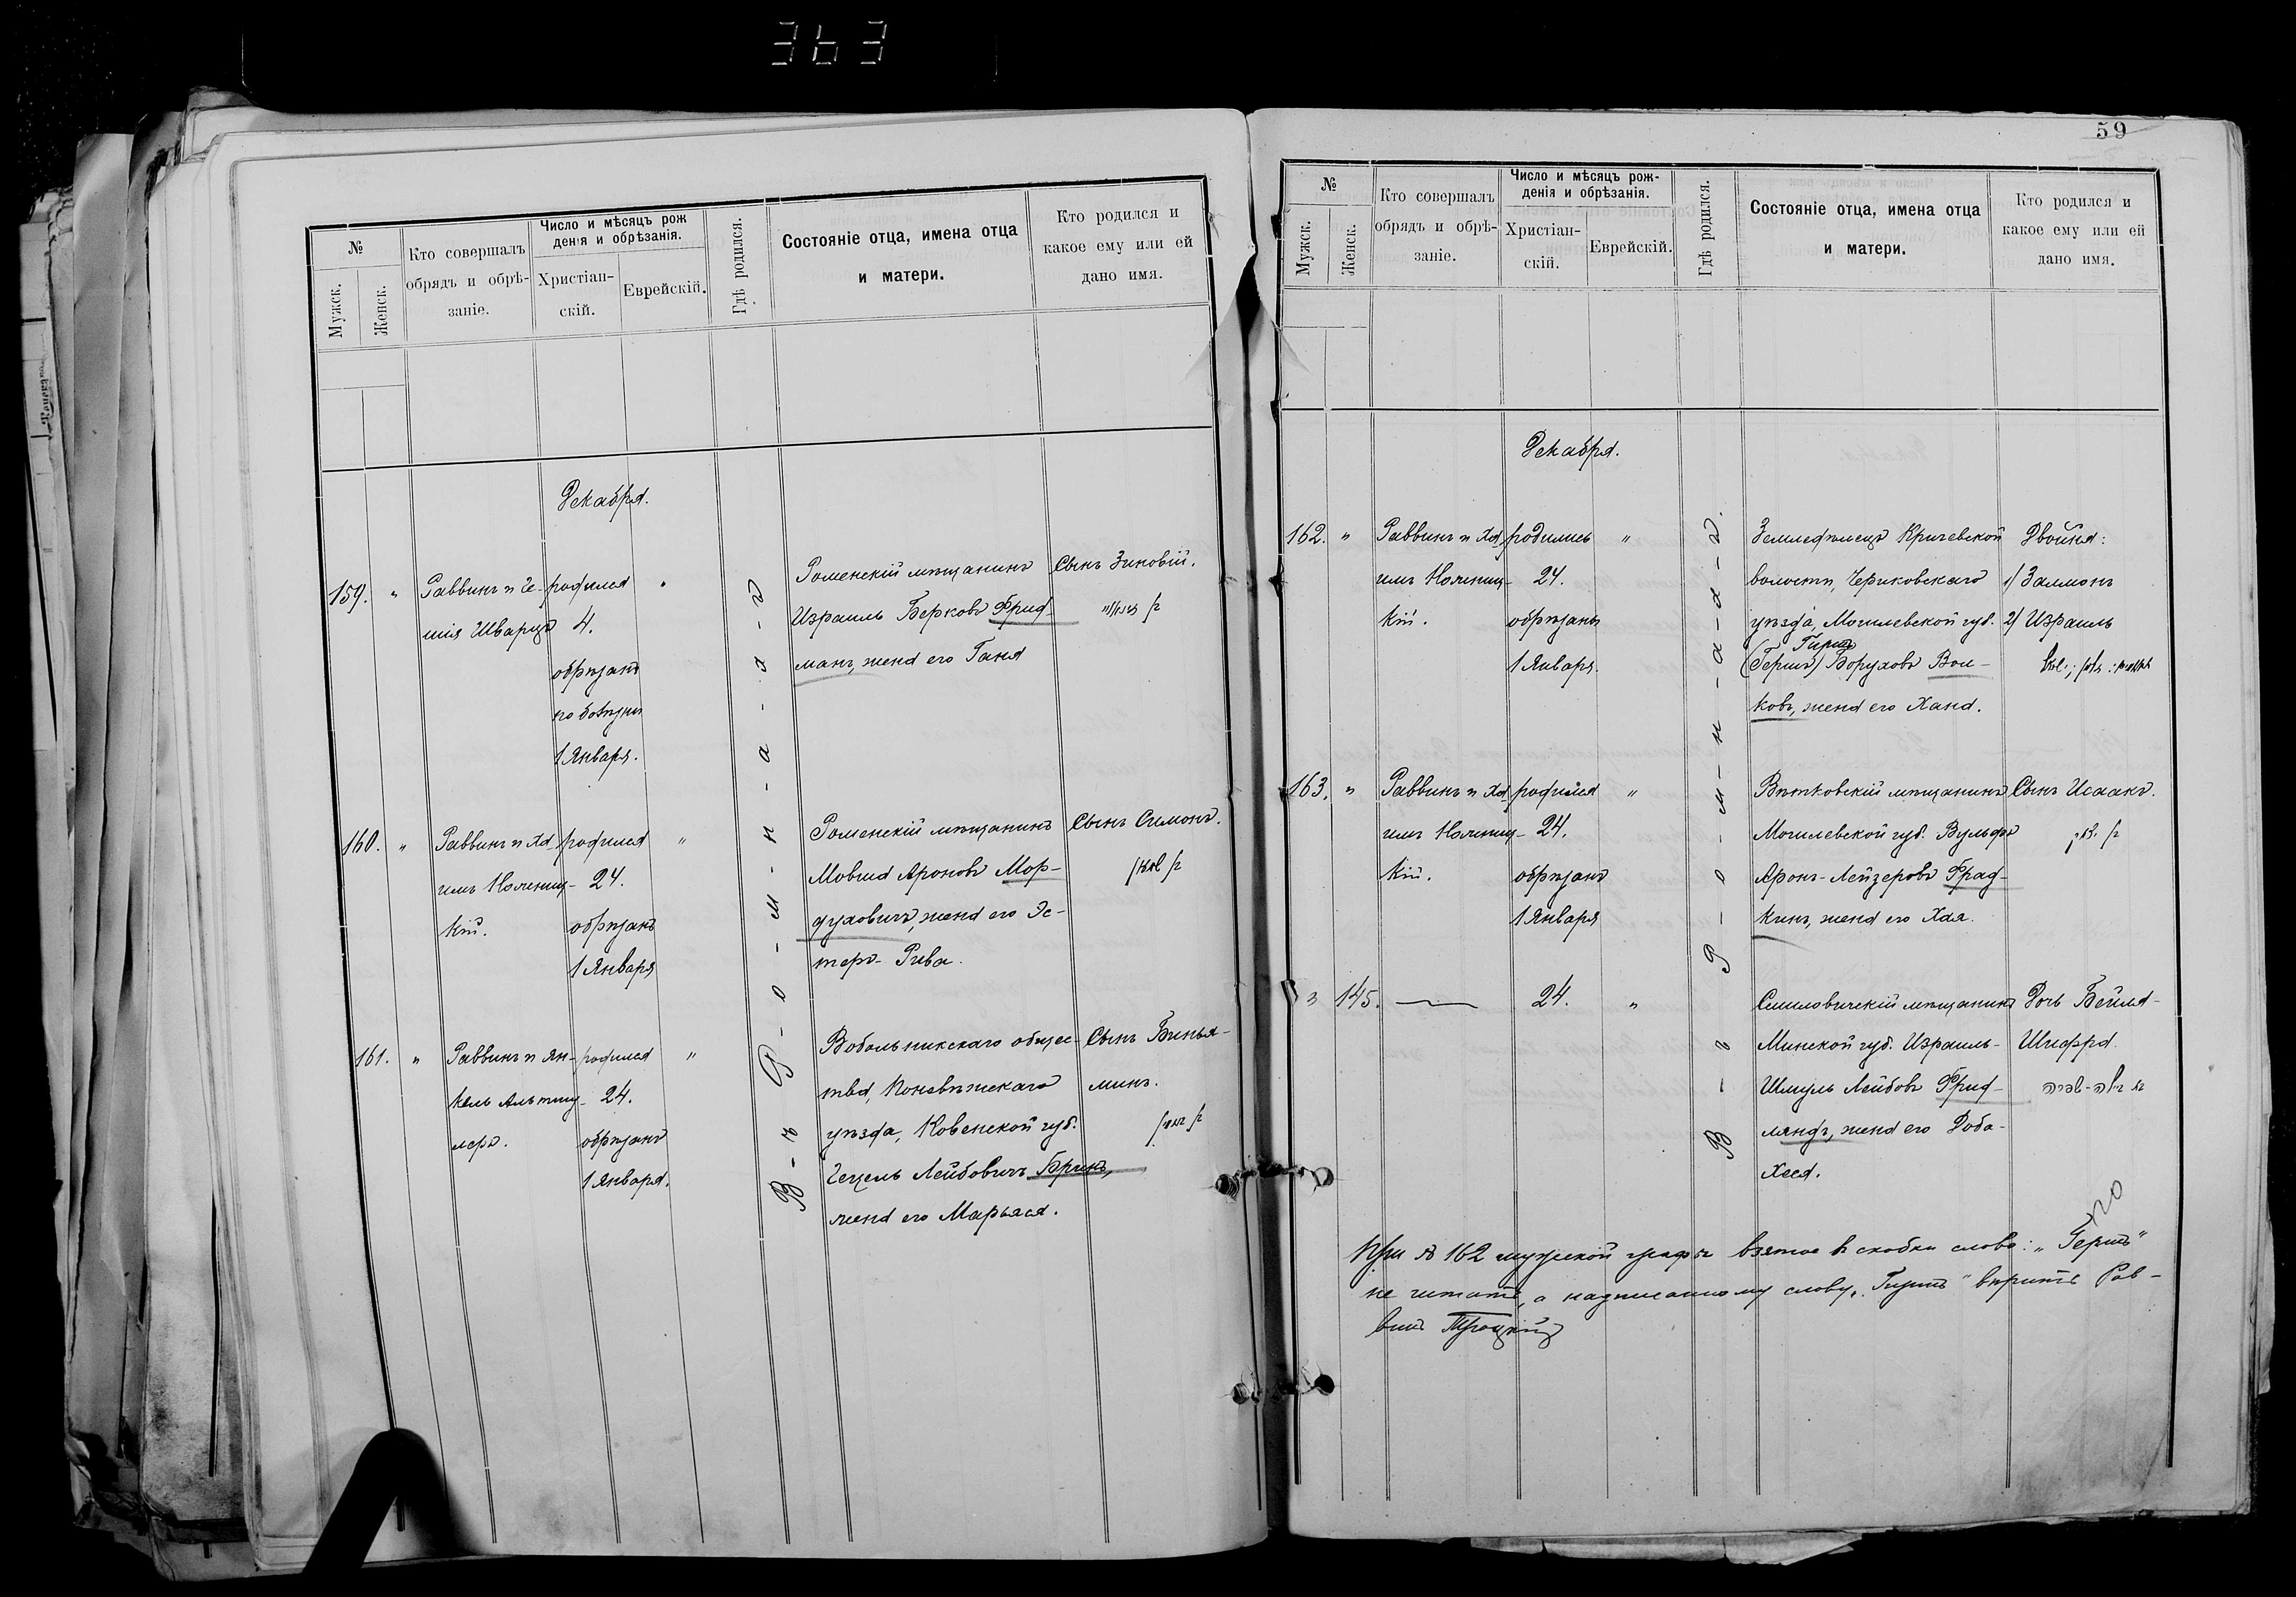 363
№
Мужск.
Женск.
Кто совершалъ
обрядъ и обрѣ-
заніе.
Число и мѣсяцъ рож
денія и обрѣзанія.
Христіан-
скій.
Еврейскій.
Гдѣ родился.
Состояніе отца, имена отца
и матери.
Кто родился и
какое ему или ей
дано имя.
Декабря.
159. "
Раввинъ и Ге-
шія Шварцъ
родился
4.
обрѣзанъ
по болѣзни
1 Января.
"
Роменскій мѣщанинъ
Израиль Берковъ Фрид-
манъ, жена его Ганя
Сынъ Зиновій.
160. "
Раввинъ и Ха-
имъ
кій.
родился
24.
обрѣзанъ
1 Января
"
Роменскій мѣщанинъ
Мовша Ароновъ Мор-
духовичъ, жена его Эс-
теръ-Рива.
Сынъ Симонъ.
בן שמעון
161. "
Раввинъ и Ян-
кель Альтшу-
леръ.
родился
24.
обрѣзанъ
1 Января.
"
Вобольникскаго общес-
тва, Поневѣжскаго
уѣзда, Ковенской губ.
Гецель Лейбовичъ Бринъ,
жена его Марьяся.
Сынъ Бинья-
минъ.
בן בנימין
В-ъ Р-о-м-н-а-х-ъ
59
№
Мужск.
Женск.
Кто совершалъ
обрядъ и обрѣ-
заніе.
Число и мѣсяцъ рож-
денія и обрѣзанія.
Христіан-
скій.
Еврейскій.
Гдѣ родился.
Состояніе отца, имена отца
и матери.
Кто родился и
какое ему или ей
дано имя.
Декабря.
162. "
Раввинъ и Ха-
имъ
кій.
родились
24.
обрѣзаны
1 Января.
"
Земледѣлецъ Кричевской
волости, Чериковскаго
уѣзда, Могилевской губ.
Гиршъ
(Гершъ) Боруховъ Вол-
ковъ, жена его Хана.
Двойня:
1) Залмонъ
2) Израиль
163. "
Раввинъ и Ха-
имъ
кій.
родился
24.
обрѣзанъ
1 Января
"
Вѣтковскій мѣщанинъ
Могилевской губ. Вульфъ
Аронъ-Лейзеровъ Фрад-
кинъ, жена его Хая.
Сынъ Исаакъ.
בן יצחק
" 145.
24.
"
Смиловичскій мѣщанинъ
Минской губ. Израиль-
Шмуль Лейбовъ Фрид-
ляндъ, жена его Доба-
Хася.
Дочь Бейля-
Шифра.
בת בילה-שפרה
В-ъ Р-о-м-н-а-х-ъ.
При № 162 мужской графѣ взятое въ скобки слово: „Гершъ"
не читать, а надписанному слову „Гиршъ" вѣрить Рав-
винъ Троцкій